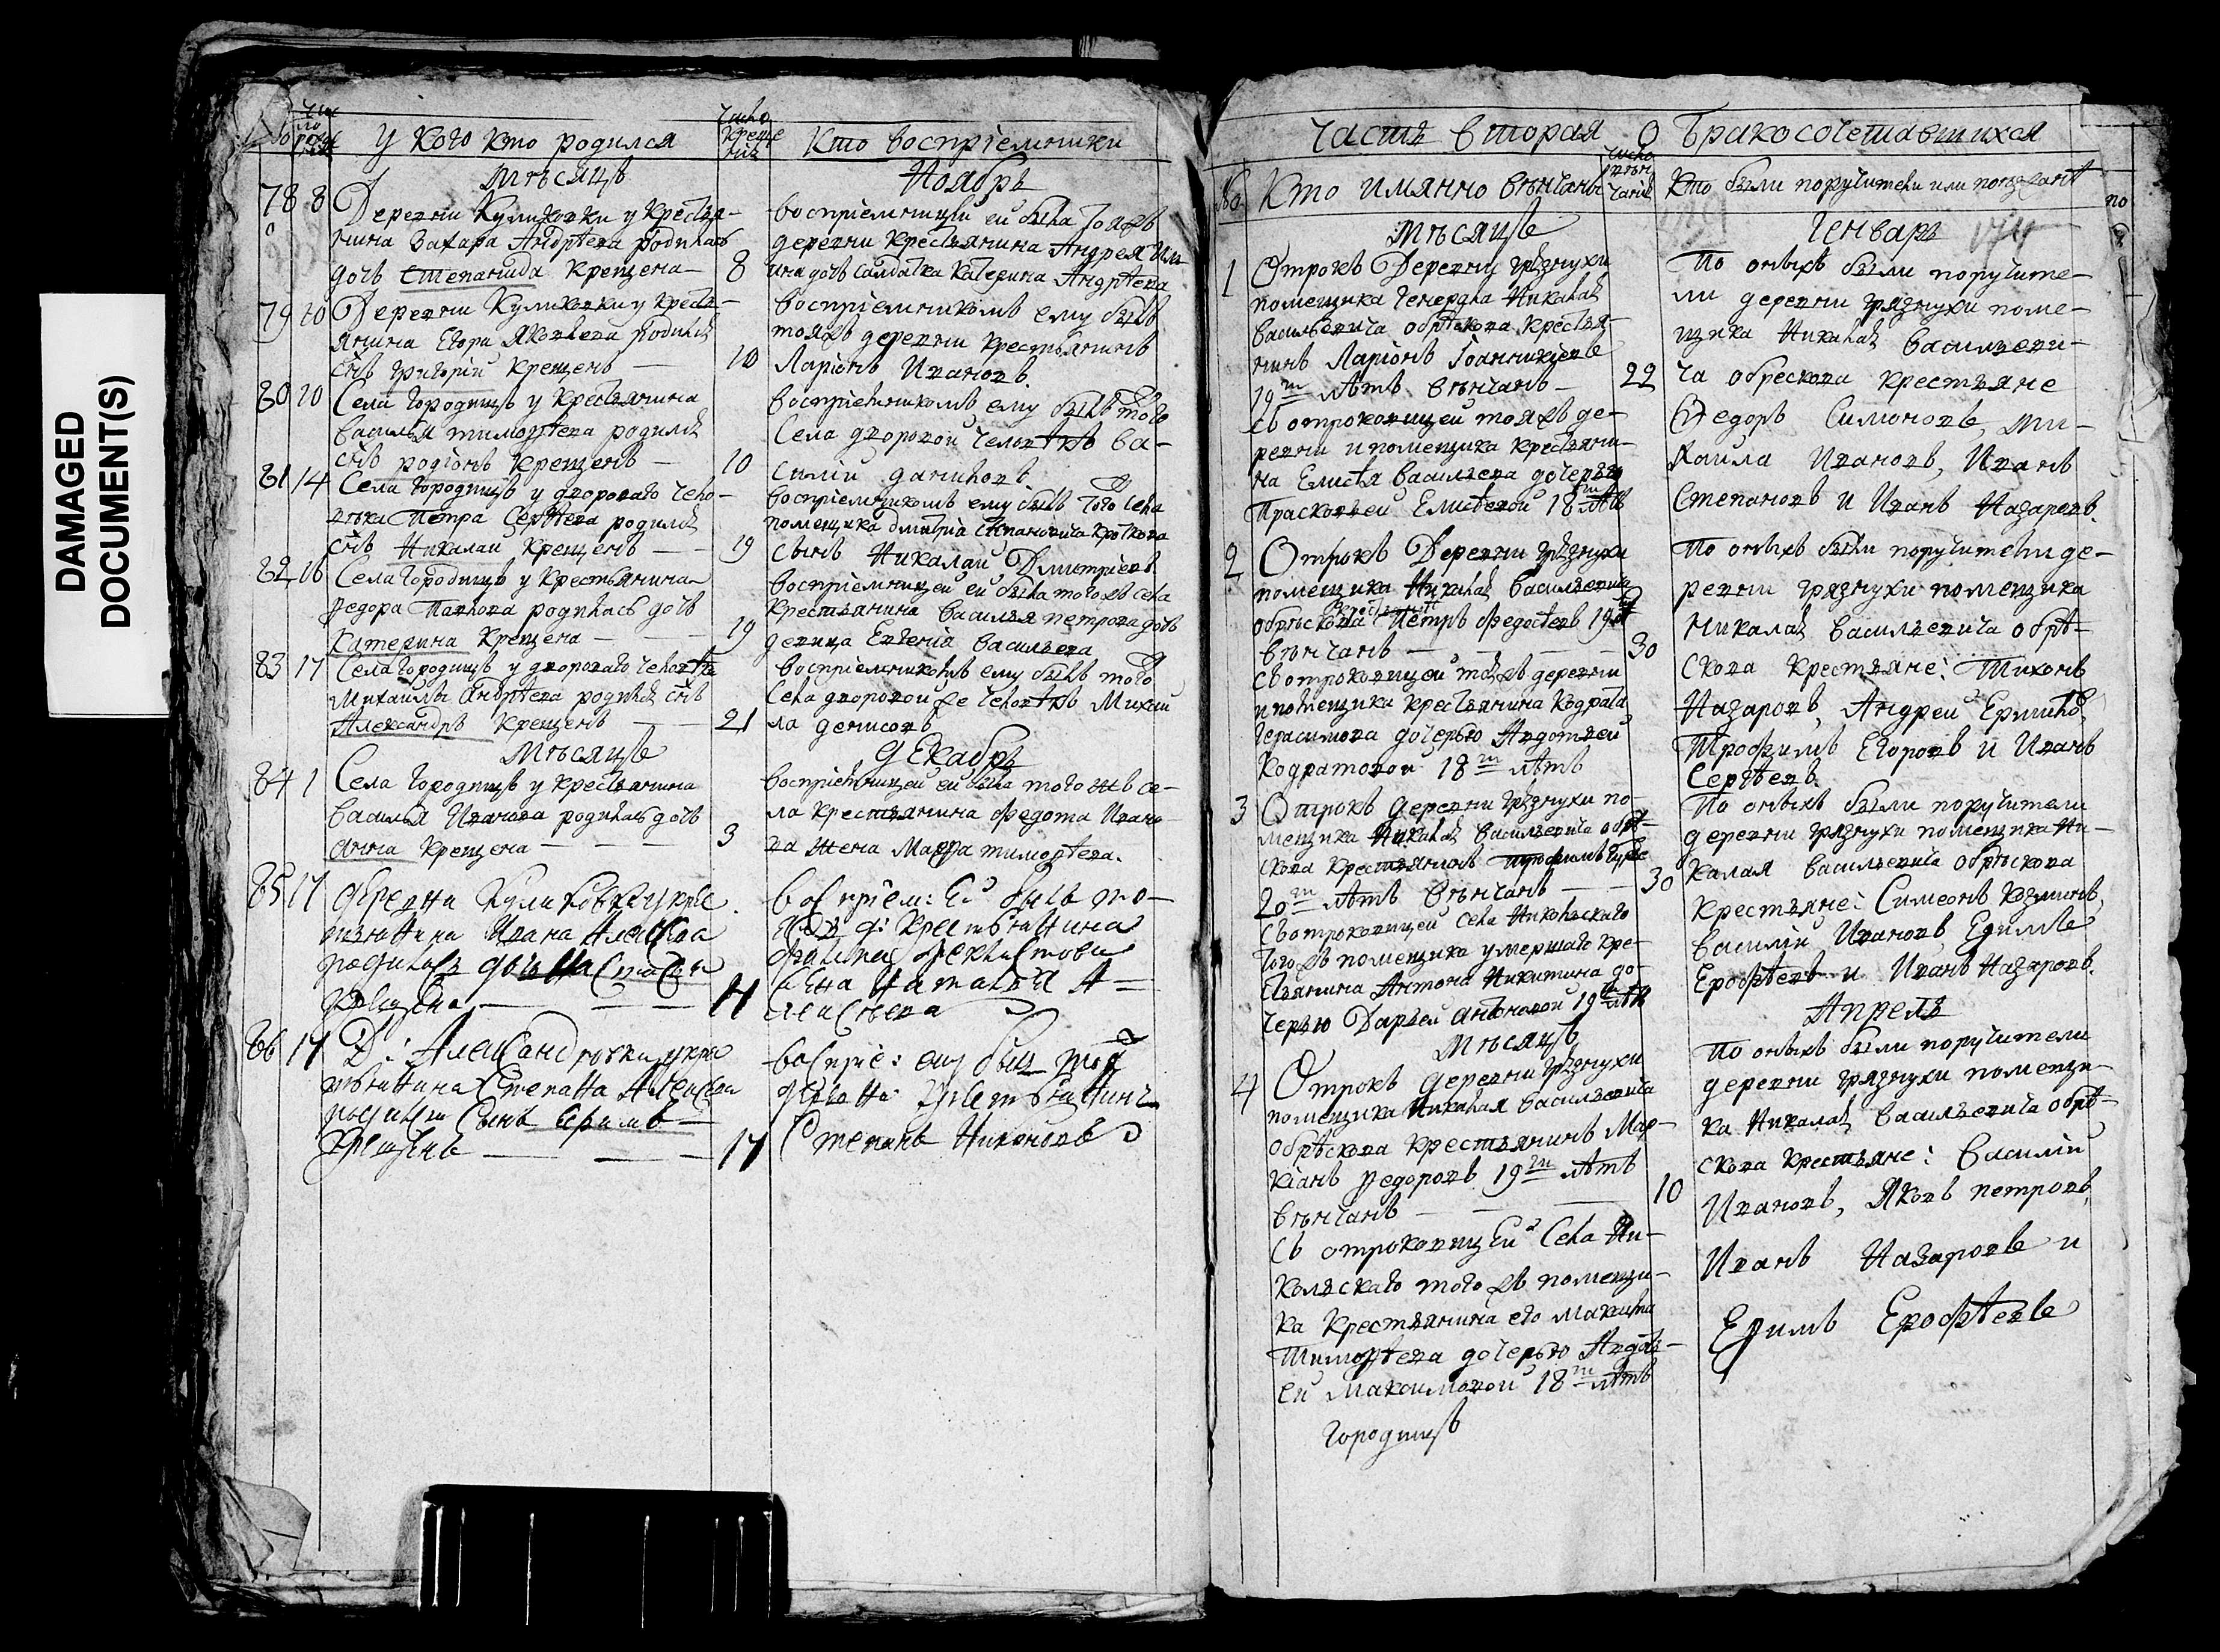 DAMAGED
DOCUMENT(S)
У кого кто родился
Число
креще
нія
Кто воспріемники
Мѣсяцъ
Ноябрь
78 8 Деревни Куликовки у крестья-
нина Захара Андрѣева родилась
дочь Степанида крещена — 8
воспріемницей ей была тояжъ
деревни крестьянина Андрея
дочь салдатка Катерина Андрѣева
79 10 Деревни Куликовки у кресть-
янина Егора Яковлева родился
снъ Григорій крещенъ — 10
воспріемникомъ ему былъ
тояжъ деревни крестьянинъ
Ларіонъ Ивановъ.
80 10 Села Городищъ у крестьянина
Василья Тимофѣева родился
снъ Родіонъ крещенъ — 10
воспріемникомъ ему былъ того
села дворовой человѣкъ Ва-
силий Даниловъ.
81 14 Села Городищъ у двороваго чело-
вѣка Петра Сергѣева родился
снъ Николай крещенъ — 19
воспріемникомъ ему былъ того села
помещика Дмитрія Степановича Кроткова
сынъ Николай Дмитріевъ.
82 16 Села Городищъ у крестьянина
Федора Павлова родилась дочь
Катерина крещена — 19
воспріемницей ей была тогожъ села
крестьянина Василья Петрова дочь
девица Евгенія Васильева
83 17 Села Городищъ у двороваго человѣка
Михайлы Андрѣева родился снъ
Александръ крещенъ — 21
воспріемникомъ ему былъ того
села дворовой же человѣкъ Михаи
ла Денисовъ
Мѣсяцъ
Декабрь
84 1 Села Городищъ у крестьянина
Василья Иванова родилась дочь
Анна крещена — 3
воспріемницей ей была того жъ се-
ла крестьянина Федота Ивано-
ва жена Марфа Тимофѣева.
85 17 деревни Куликовки у кре
стьянина Ивана Алексѣева
родилась дочь Настасья
крещена —
воспріем: ей была то-
яжъ д: крестьянина
жена Наталья А=
лексѣева
86 17 Д: Александровки у кре
стьянина Степана Алексѣева
родился сынъ Ефимъ
крещенъ — 17
воспріе: ему былъ той
деревни крестьянинъ
Степанъ Никоновъ
Часть вторая О бракосочетавшихся
No Кто имянно вѣнчаны
Число
вѣн
чанія
Кто были поручители или поезжаня
по
Мѣсяцъ
Генварь
174
1 Отрокъ деревни Грязнухи
помещика генерала Николая
Васильевича Обрѣскова крестья-
нинъ Ларіонъ Іоанникіевъ
19ти лѣтъ вѣнчанъ — 22
съ отроковицей тояжъ де-
ревни и помещика крестьяни-
на Елисѣя Васильева дочерью
Прасковьей Елисѣевой 18ти лѣтъ
По оныхъ были поручите-
ли деревни Грязнухи поме-
щика Николая Василъеви-
ча Обрескова крестьяне
Федоръ Симоновъ, Ми-
хайла Ивановъ, Иванъ
Степановъ и Иванъ Назаровъ.
2 Отрокъ деревни Грязнухи
помещика Николая Васильевича
Обрѣскова крестьянинъ Петръ Федосѣевъ 19ти
вѣнчанъ — 30
съ отроковицей тояжъ деревни
и помещика крестьянина Кодрата
Герасимова дочерью Авдотьей
Кодратовой 18ти лѣтъ
По оныхъ были поручители де-
ревни Грязнухи помещика
Николая Васильевича Обрѣ-
скова крестьяне: Тихонъ
Назаровъ, Андрей Ермило
Трофимъ Егоровъ и Иванъ
Сергѣевъ.
3 Отрокъ деревни Грязнухи по-
мещика Николая Васильевича Обрѣ-
скова крестьянинъ Трофимъ
20ти лѣтъ вѣнчанъ — 30
съ отроковицей села Никольскаго
тогожъ помещика умершаго кре-
стьянина Антона Никитина до-
черью Дарьей Антоновой 19ти лѣтъ
По оныхъ были поручители
деревни Грязнухи помещика Ни-
калая Васильевича Обрѣскова
крестьяне: Симеонъ Козминъ,
Василій Ивановъ, Ефимъ
Ерофѣевъ и Иванъ Назаровъ.
Мѣсяцъ
Апрель
4 Отрокъ деревни Грязнухи
помещика Николая Васильевича
Обрѣскова крестьянинъ Мар-
кіанъ Федоровъ 19ти лѣтъ
вѣнчанъ — 10
съ отроковицей села Ни-
кольскаго тогожъ помещи-
ка крестьянина его Максима
Тимофѣева дочерью Авдоть-
ей Максимовой 18ти лѣтъ
По оныхъ были поручители
деревни Грязнухи помещи-
ка Николая Васильевича Обрѣ-
скова крестьяне: Василій
Ивановъ, Яковъ Петровъ,
Иванъ Назаровъ и
Ефимъ Ерофѣевъ
Городищъ